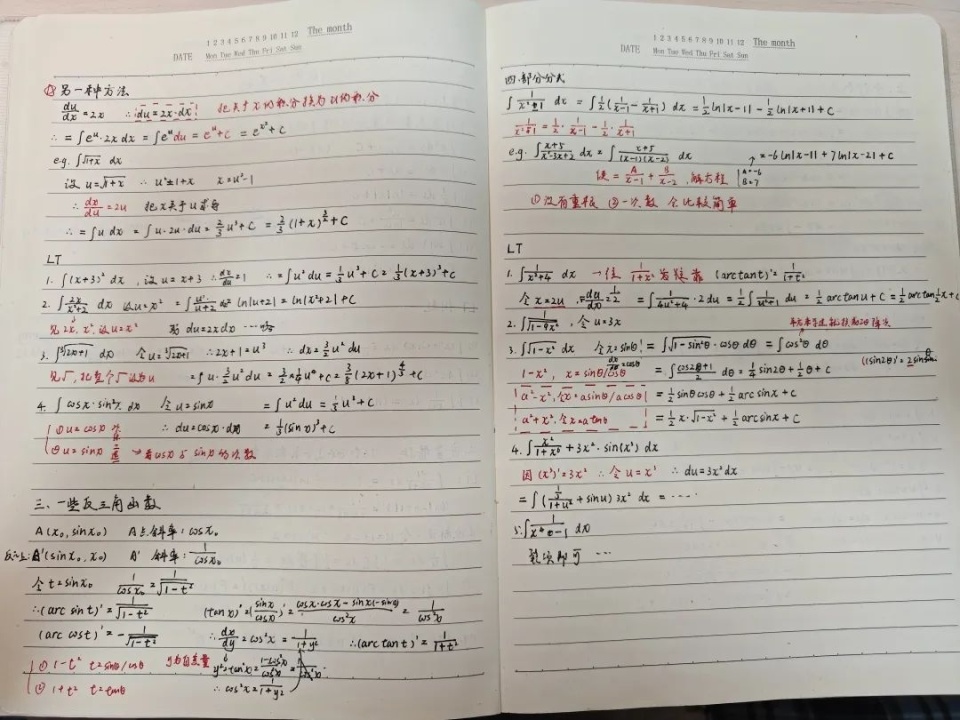 1 2 3 4 5 6 7 8 9 10 11 12 The month
DATE Mon Tue Wed Thu Fri Sat Sun
② 另一种方法
du/dx = 2x ∴ du = 2x·dx! 把关于x的积分换为u的积分
∴ = ∫e^u·2x dx = ∫e^u du = e^u + C = e^{x²} + C
e.g. ∫√(1+x) dx
设 u = √(1+x) ∴ u² = 1+x x = u²-1
∴ dx/du = 2u 把x关于u求导
∴ = ∫u dx = ∫u·2u·du = 2/3 u³ + C = 2/3 (1+x)^{3/2} + C
LT
1. ∫(x+3)² dx, 设 u = x+3 ∴ du/dx = 1 ∴ = ∫u² du = 1/3 u³ + C = 1/3 (x+3)³ + C
2. ∫ 2x/(x²+2) dx 设 u = x² = ∫ u'/(u+2) dx = ln|u+2| = ln|x²+2| + C
见2x, x², 设u = x² 或 du = 2x dx ……
3. ∫ ∛(2x+1) dx 令 u = ∛(2x+1) ∴ 2x+1 = u³ ∴ dx = 3/2 u² du
见√, 把整个√设为u = ∫u·3/2 u² du = 3/2 × 1/4 u⁴ + C = 3/8 (2x+1)^{4/3} + C
4. ∫ cosx·sin²x dx 令 u = sinx = ∫u² du = 1/3 u³ + C
① u = cosx ∴ du = cosx·dx = 1/3 (sinx)³ + C
② u = sinx → 看cosx与sinx的次数
三、一些反三角函数
A(x₀, sinx₀) A点斜率: cosx₀
A'(sinx₀, x₀) A' 斜率: 1/cosx₀
令 t = sinx₀ 1/cosx₀ = 1/√(1-t²)
∴ (arc sin t)' = 1/√(1-t²) (tan x)' = (sinx/cosx)' = (cosx·cosx - sinx(-sinx))/cos²x = 1/cos²x
(arc cos t)' = -1/√(1-t²) ∴ dx/dy = cos²x = 1/(1+y²) ∴ (arc tan t)' = 1/(1+t²)
① 1-t² t = sinθ/cosθ y为自变量 y² = tan²x = (1-cos²x)/cos²x
② 1+t² t = tanθ ∴ cos²x = 1/(1+y²)
1 2 3 4 5 6 7 8 9 10 11 12 The month
DATE Mon Tue Wed Thu Fri Sat Sun
四、部分分式
∫ 1/(x²-1) dx = ∫ 1/2 (1/(x-1) - 1/(x+1)) dx = 1/2 ln|x-1| - 1/2 ln|x+1| + C
1/(x²-1) = 1/2·1/(x-1) - 1/2·1/(x+1)
e.g. ∫ (x+5)/(x²-3x+2) dx = ∫ (x+5)/((x-1)(x-2)) dx = -6 ln|x-1| + 7 ln|x-2| + C
使 = A/(x-1) + B/(x-2), 解方程 A = -6 B = 7
① 没有重根 ② 一次数 会比较简单
LT
1. ∫ 1/(x²+4) dx → 往 1/(1+x²) 发展靠 (arc tan t)' = 1/(1+t²)
令 x = 2u, ∴ du/dx = 1/2 = ∫ 1/(4u²+4)·2 du = 1/2 ∫ 1/(u²+1) du = 1/2 arc tan u + C = 1/2 arc tan 1/2 x + C
2. ∫ 1/√(1-9x²), 令 u = 3x
3. ∫√(1-x²) dx 令 x = sinθ! = ∫√(1-sin²θ)·cosθ dθ = ∫cos²θ dθ
1-x², x = sinθ/cosθ dx/dθ = cosθ = ∫ (cos2θ+1)/2 dθ = 1/4 sin2θ + 1/2 θ + C
a²-x², 令x = a sinθ / a cosθ = 1/2 sinθcosθ + 1/2 arc sin x + C
a²+x², 令x = a tanθ = 1/2 x·√(1-x²) + 1/2 arc sin x + C
4. ∫ x²/(1+x⁶) + 3x²·sin(x³) dx
因 (x³)' = 3x² ∴ 令 u = x³ ∴ du = 3x² dx
= ∫ ((1/3)/(1+u²) + sin u) 3x² dx = ……